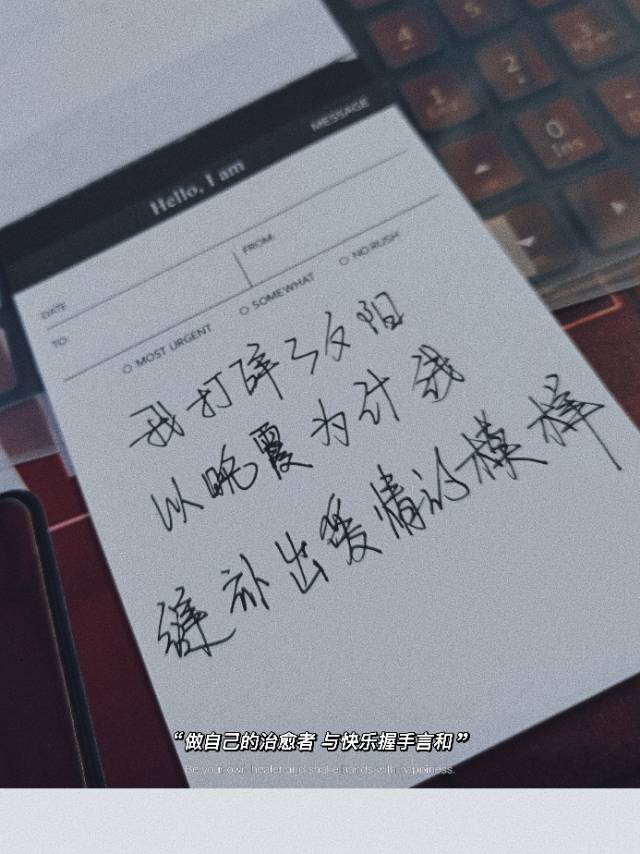 4
5
1
2
3
0
Ins
MESSAGE
Hello, I am
DATE
FROM:
TO:
MOST URGENT
SOMEWHAT
NO RUSH
我打碎了夕阳
以晚霞为针线
缝补出爱情的模样
“做自己的治愈者 与快乐握手言和”
Be your own healer and shake hands with happiness.